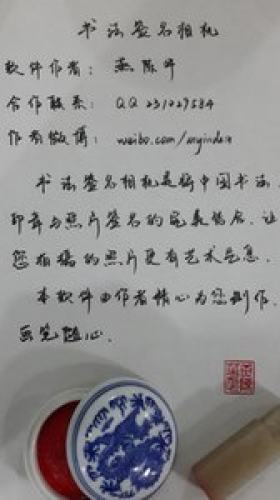 书法签名相机
软件作者：燕陈华
合作联系：QQ 231229584
作者微博：weibo.com/myindex
书法签名相机是将中国书法、
印章与照片签名的完美结合，让
您拍摄的照片更有艺术气息。
本软件由作者精心为您制作，
画笔随心。